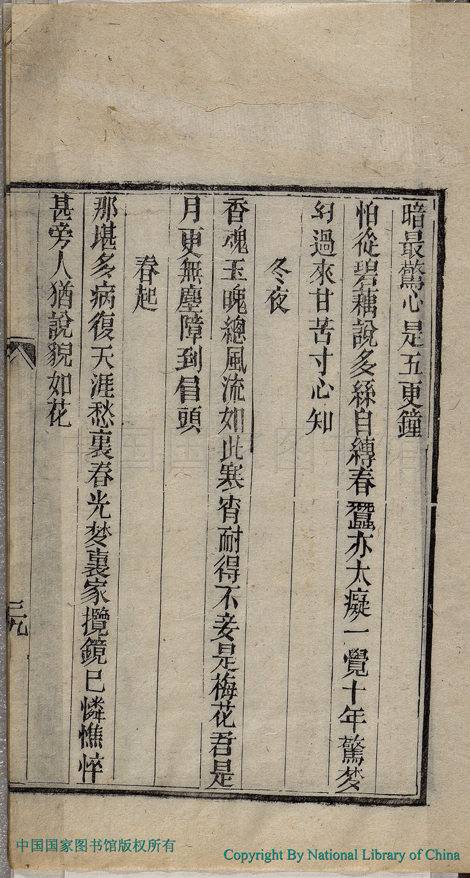 暗最驚心是五更鐘
怕從碧藕說多絲自縛春蠶亦太癡一覺十年驚夢
幻過來甘苦寸心知
冬夜
香魂玉魄總風流如此寒宵耐得不妾是梅花君是
月更無塵障到眉頭
春起
那堪多病復天涯愁裏春光梦裏家攬鏡已憐憔悴
甚旁人猶說貌如花
三九
中国国家图书馆版权所有
Copyright By National Library of China